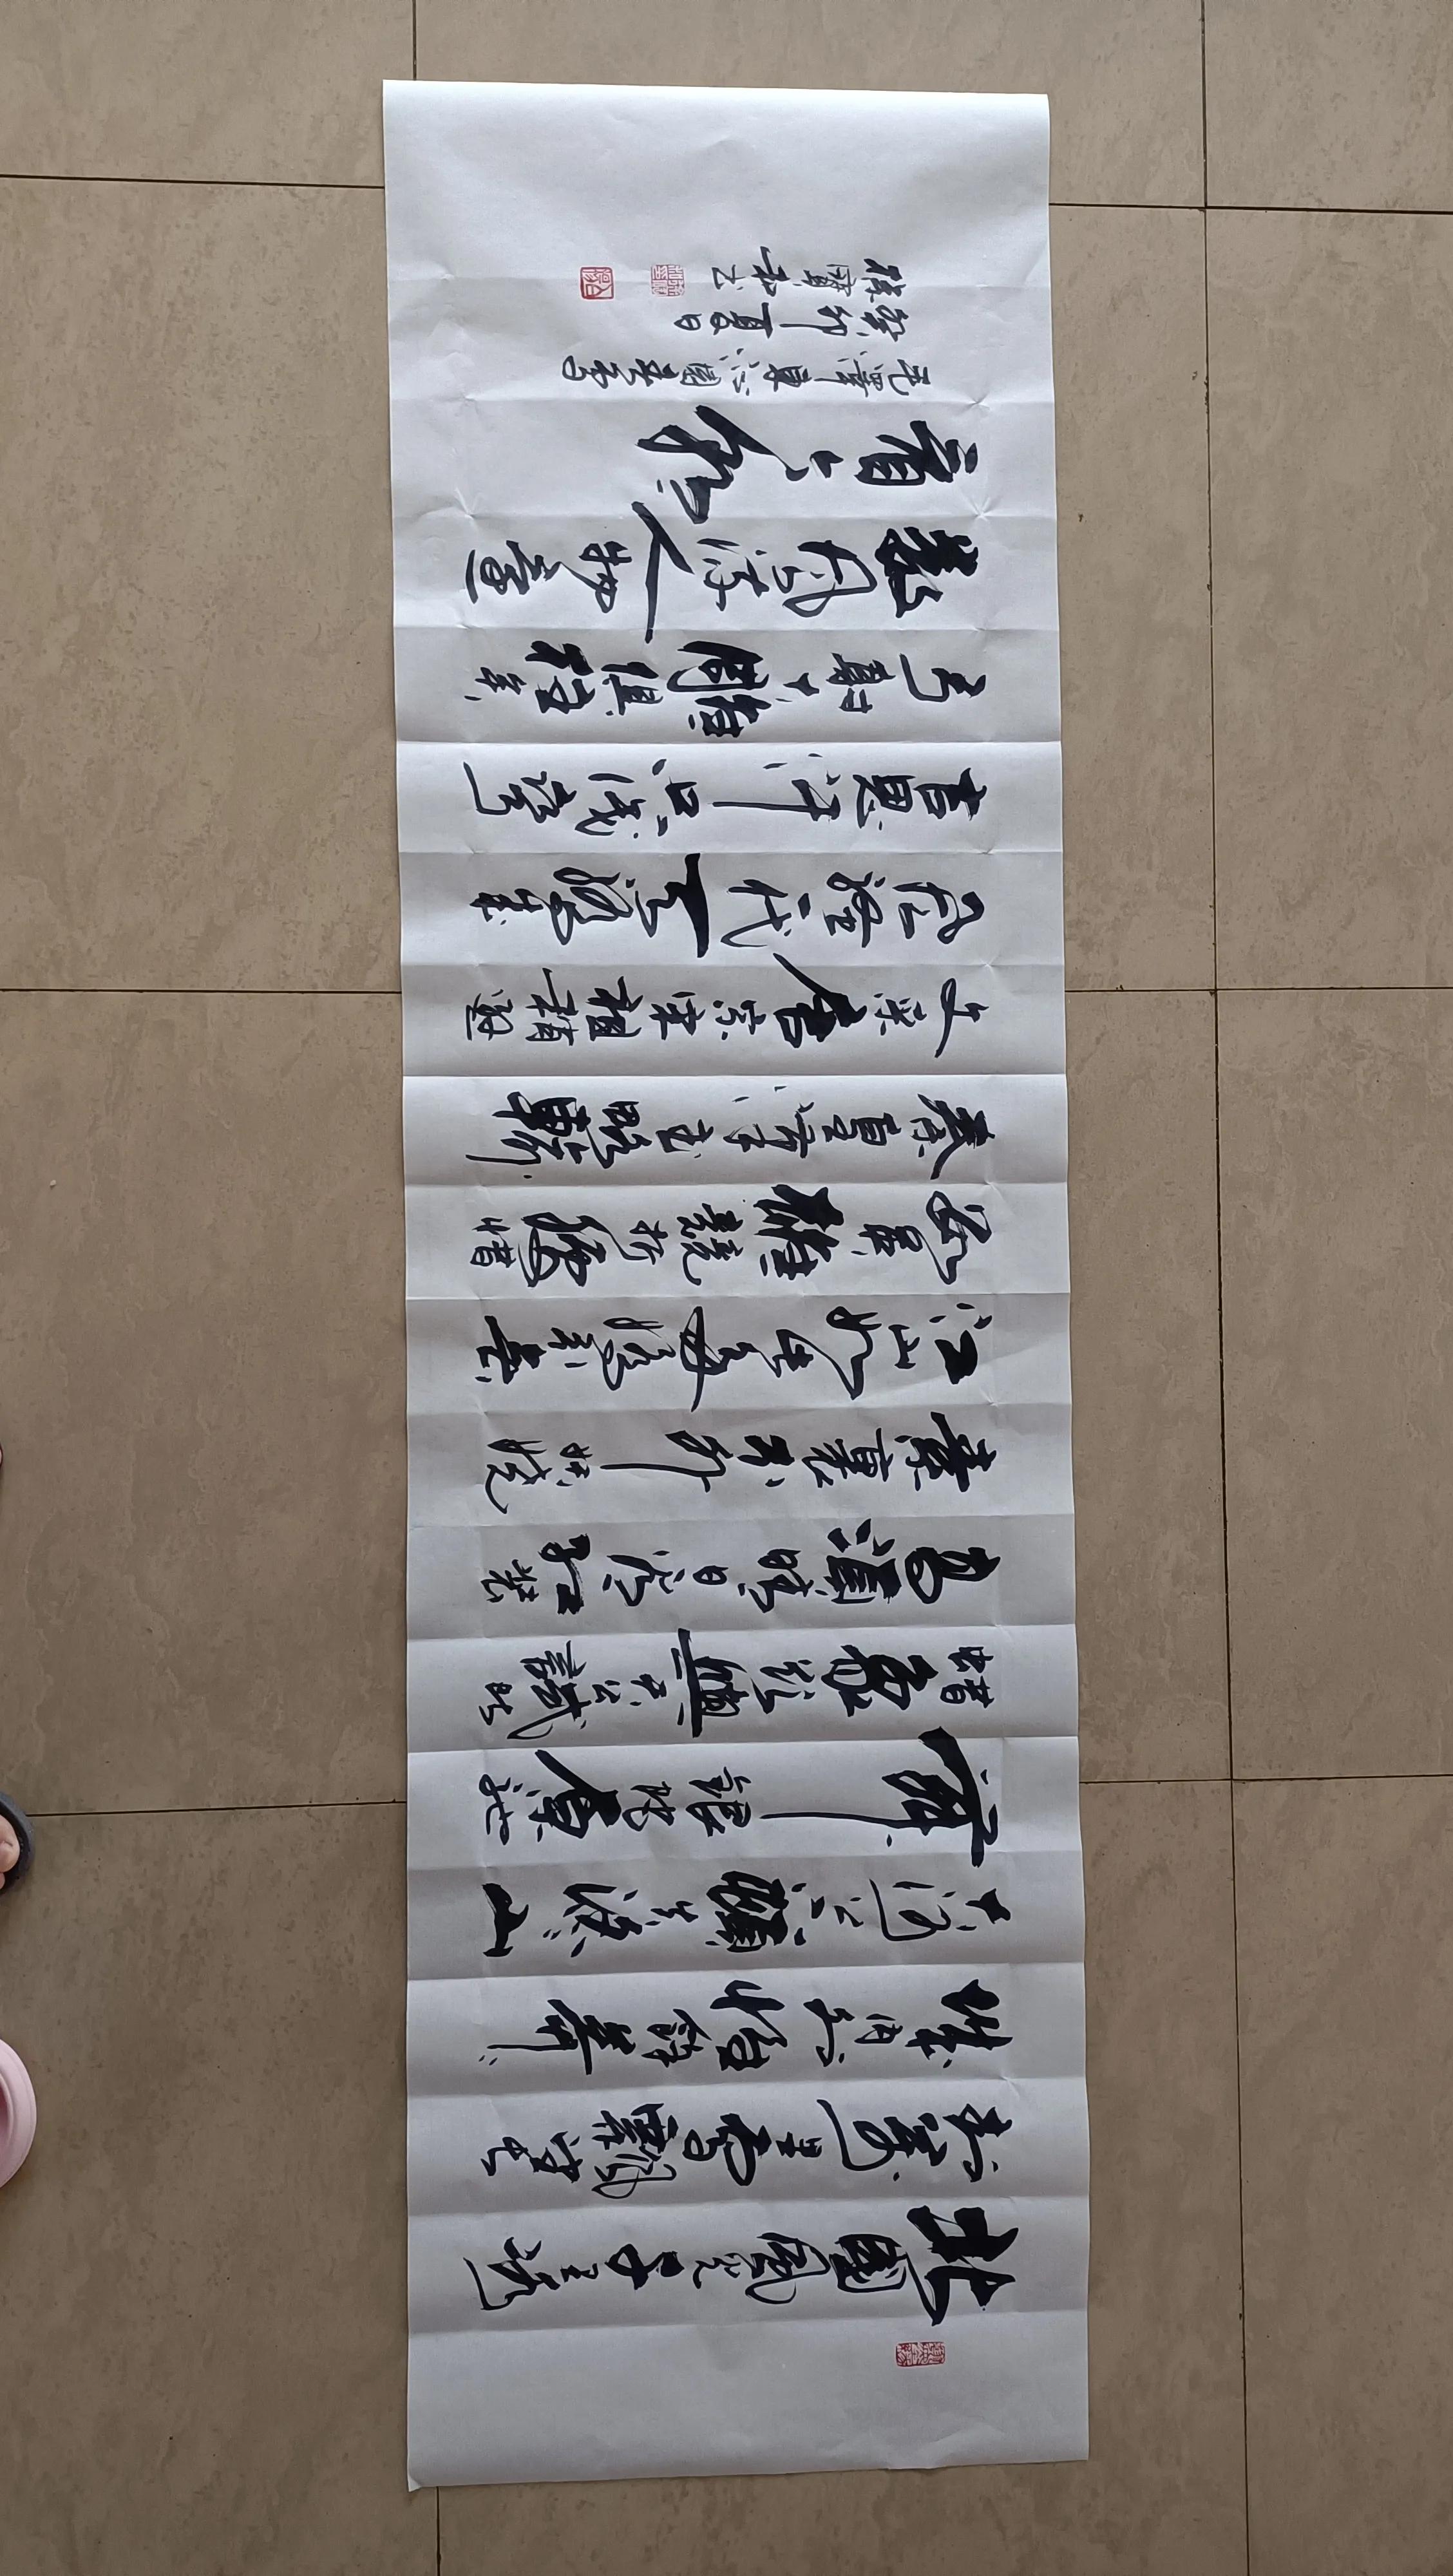 北國風光千里冰
封萬里雪飄望長
城内外惟餘莽莽
大河上下頓失滔滔山
舞銀蛇原馳
蠟象欲與天公試比
高須晴日看紅裝
素裹分外妖嬈
江山如此多嬌引無
數英雄競折腰惜
秦皇漢武略輸
文采唐宗宋祖稍遜
風騷一代天驕成
吉思汗只識彎
弓射大雕俱往矣
數風流人物還
看今朝
毛澤東沁園春雪
癸卯夏日